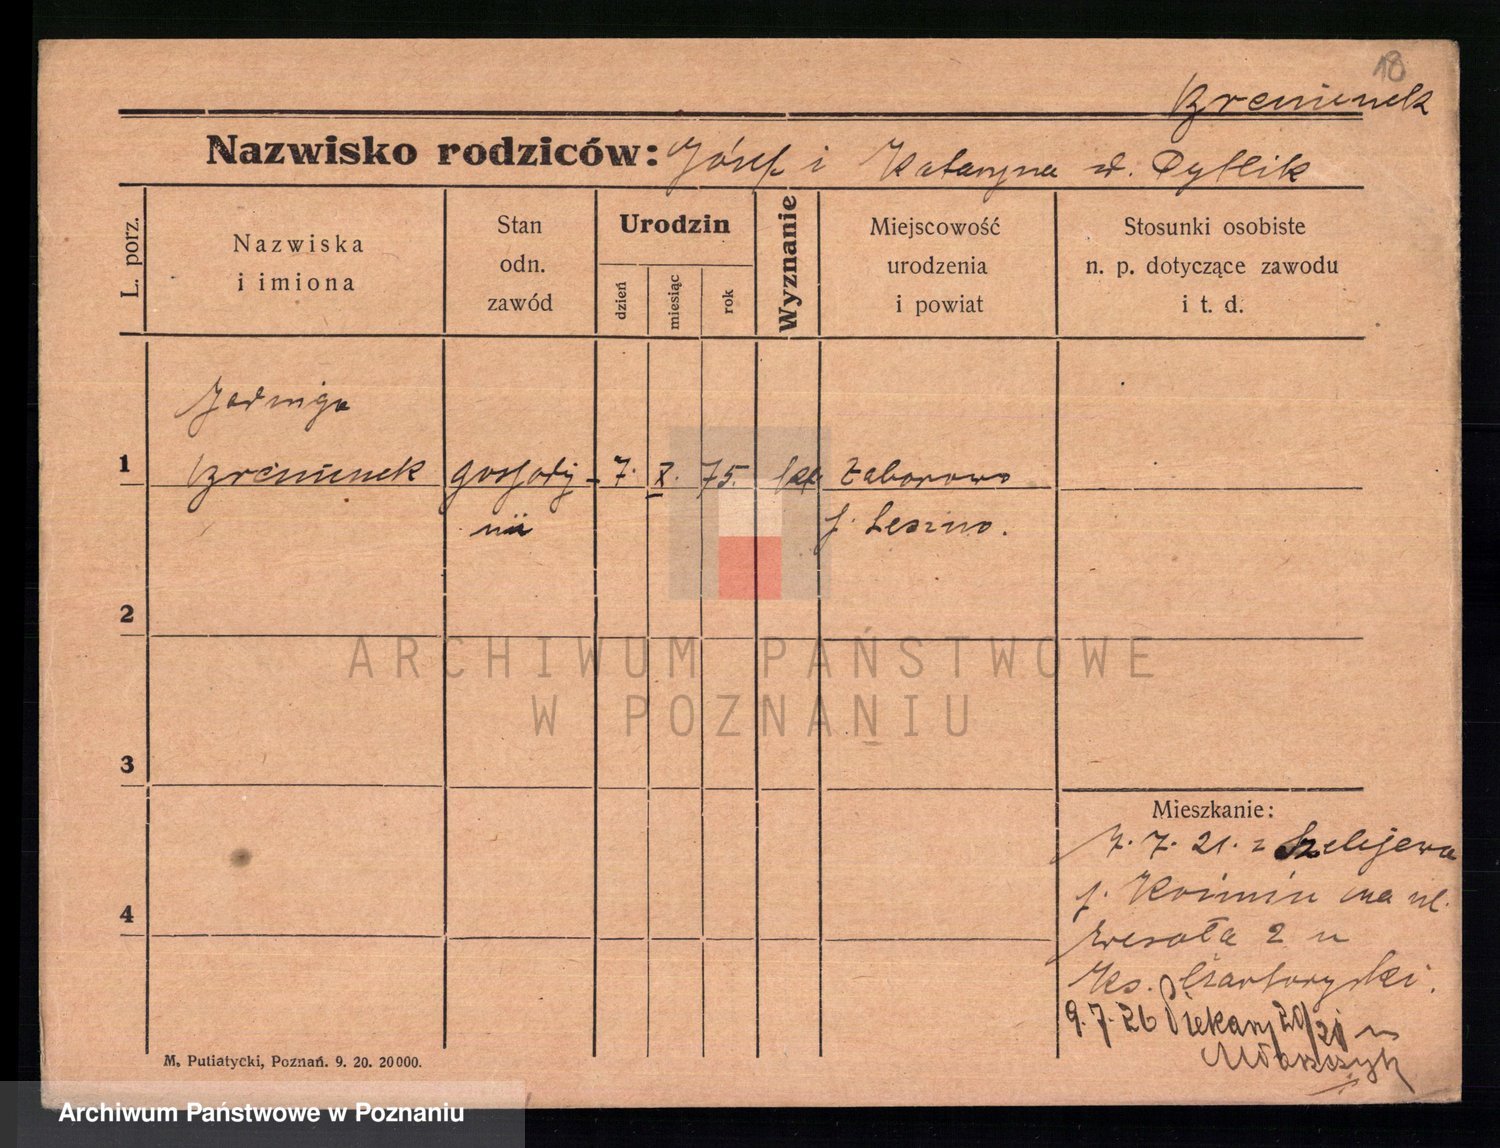 18
Nazwisko rodziców: Józef i Katarzyna d. Dyblik
L. porz.
Nazwiska
i imiona
Stan
odn.
zawód
Urodzin
dzień
miesiąc
rok
Wyznanie
Miejscowość
urodzenia
i powiat
Stosunki osobiste
n. p. dotyczące zawodu
i t. d.
Jadwiga
1
gospody-
nii
7. X. 75.
kat.
Zaborowo
p. Leszno.
2
3
4
Mieszkanie:
7. 7. 21. z Szelejewa
p. Koźmin na ul.
Wesoła 2 u
Ks. Czartoryski.
9. 7. 26 Piekary 20/21 u
M. Putiatycki, Poznań. 9. 20. 20000.
ARCHIWUM PAŃSTWOWE
W POZNANIU
Archiwum Państwowe w Poznaniu